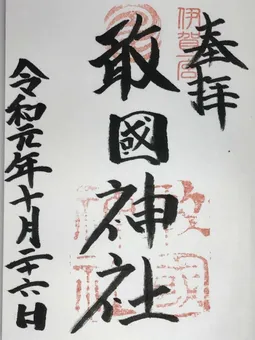 奉拝
伊賀一宮
敢國神社
令和元年十月二十六日